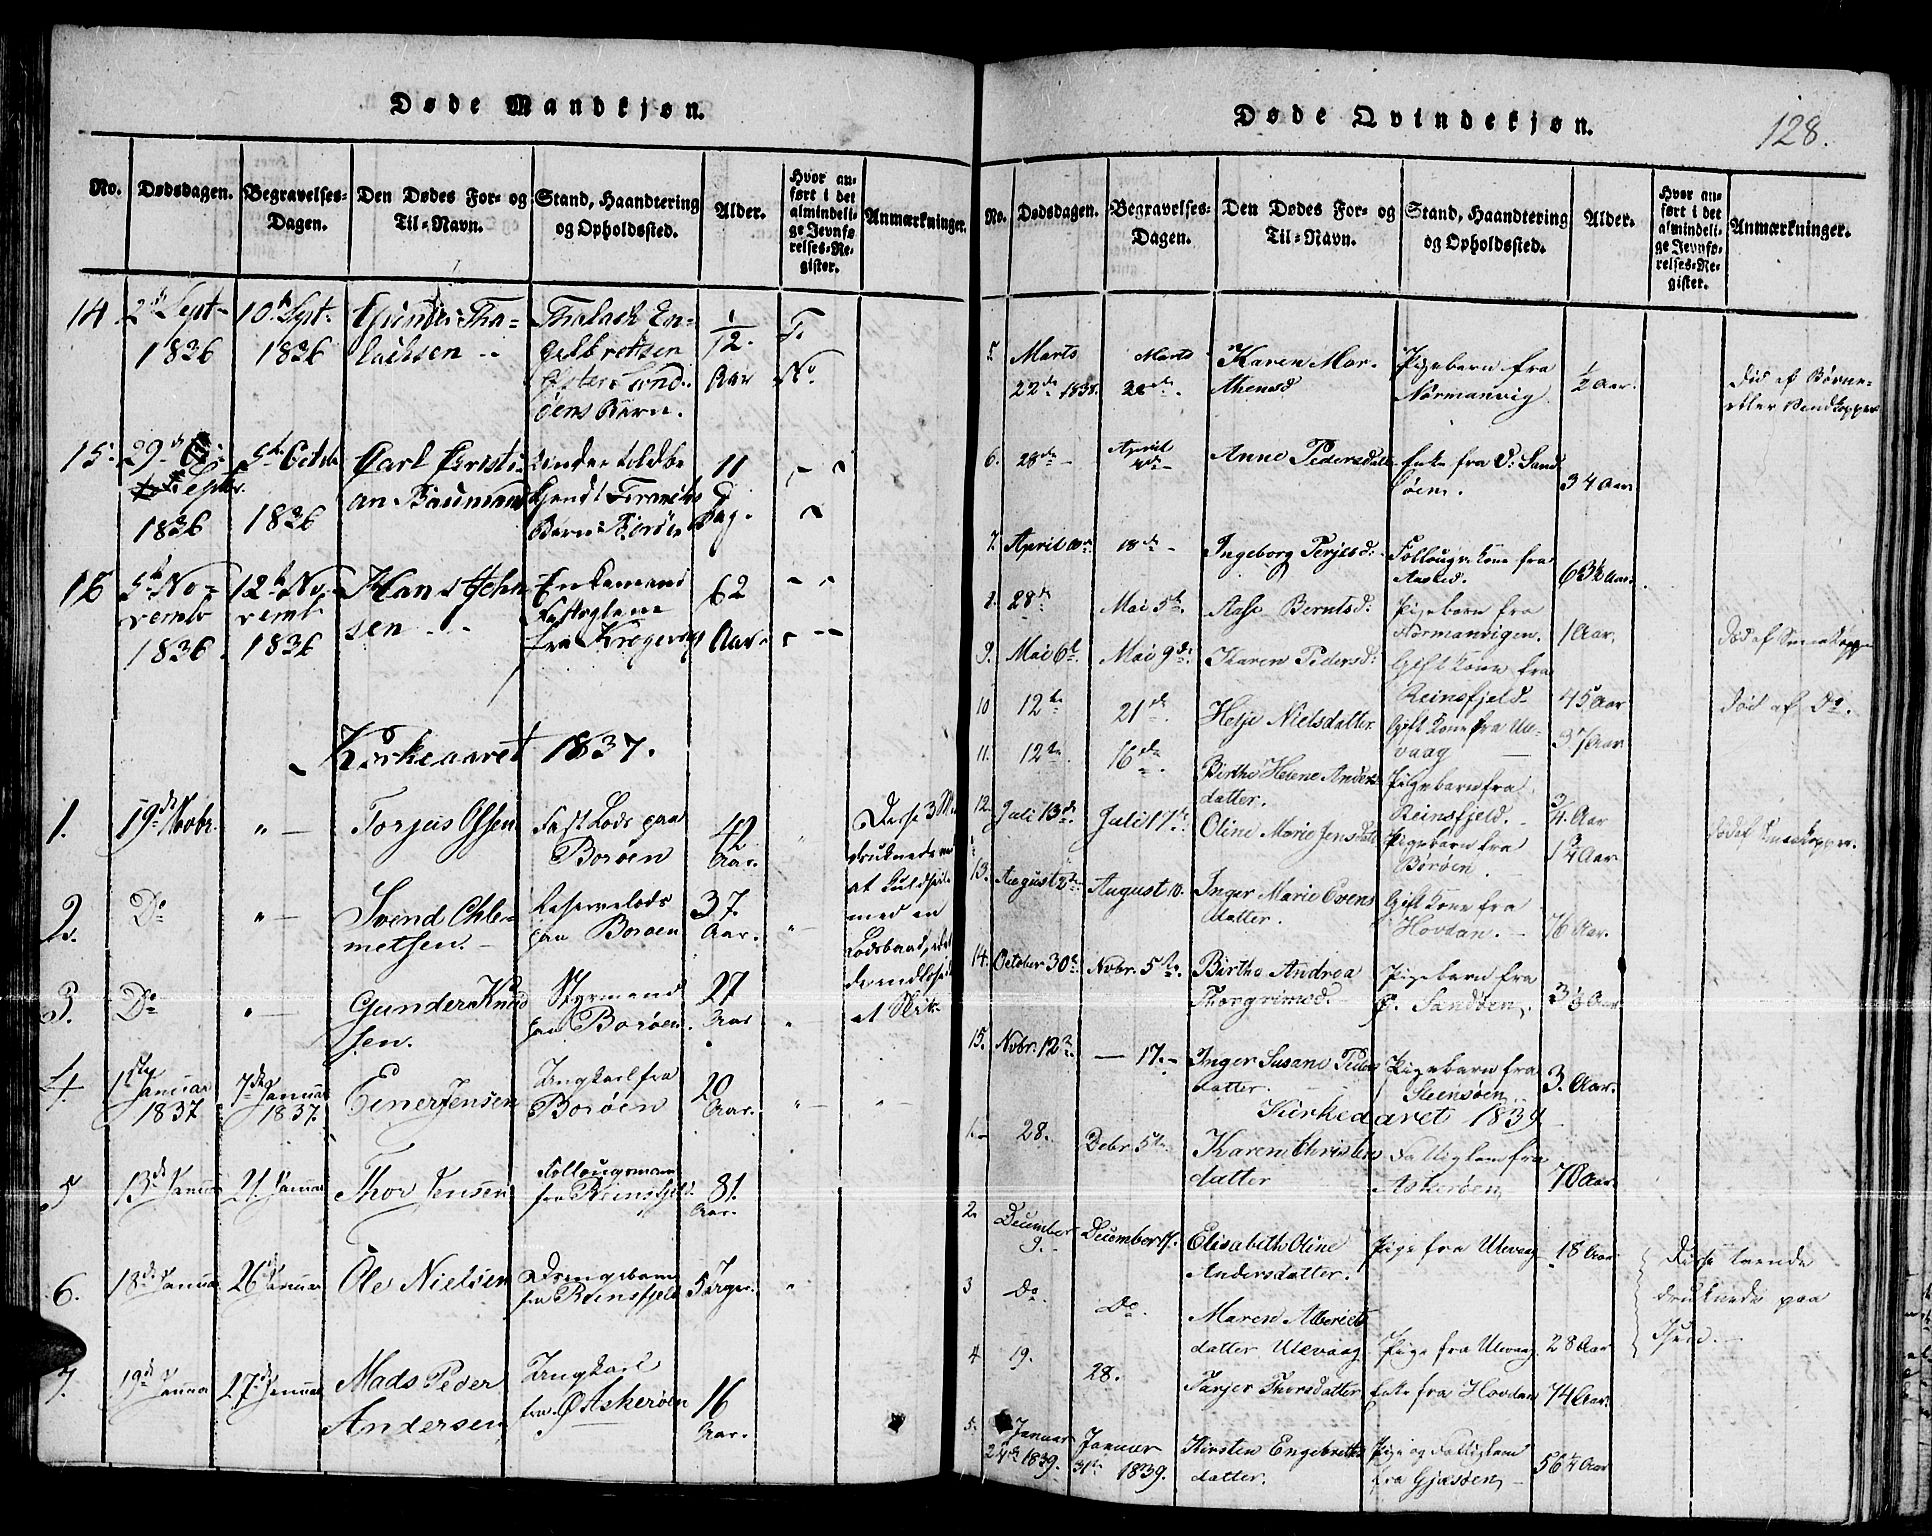 Døde Mandkjøn.
No.
Dødsdagen.
Begravelses-
Dagen.
Den Dødes For- og
Til-Navn.
Stand, Haandtering
og Opholdssted.
Alder.
Hvor an-
ført i det
almindeli-
ge Jevnfø-
relses-Re-
gister.
Anmærkninger.
14.
2de Sept
1836
10de Spt.
1836
Tha-
laksen
Thalack En-
gelbretsen
Øster Sand-
øens Barn.
1/12.
Aar
F.
No.
15.
29de
Septbr.
1836
5te Octob
1836
Carl Cristi-
an
Barn: Borøe
11
Dag.
16
5te No-
vemb
1836.
12te No-
vemb
1836
Hans John
sen
Enkemand
fra Krogevog
62
Aar
Kirkeaaret 1837.
1.
19de Novbr.
"
Torjus Olsen
Fast Lods paa
Borøen
42
Aar.
"
Disse 3 
druknede ved
at
med en
Lodsbaad,
et Skib.
2.
Do
"
Svend Chle-
metsen.
Reservelods
paa Borøen
37.
Aar.
"
3.
Do
"
Gunder Knud
sen.
Styrmand
paa Borøen.
27
Aar
"
4.
1ste
Januar
1837
7de Januar
1837.
Einer Jensen
Ungkarl fra
Borøen
20
Aar.
"
"
5
13de Januar
21. Januar
Thor Jensen
Follougsmand
fra Reinsfjeld.
81.
Aar.
"
6.
18de Januar
26de Januar
Ole Nielsen
Drengebarn
fra Reinsfjeld
5 
"
7.
19de Januar
27de Januar
Mads Peder
Andersen
Ungkarl
fra Ø Askerøen
16
Aar.
128.
Døde Qvindekjøn.
No.
Dødsdagen.
Begravelses-
Dagen.
Den Dødes For- og
Til-Navn.
Stand, Haandtering
og Opholdssted.
Alder.
Hvor an-
ført i det
almindeli-
ge Jevnfø-
relses-Re-
gister.
Anmærkninger.
5.
Marts
22de 1838.
Marts
28de.
Karen Mor-
thensd
Pigebarn fra
Normanvig
1/2 Aar.
Død af Børne-
eller Vandkopper
6.
28de
April
Anne Pedersdatter
Enke fra V: Sand
øen.
34 Aar
7.
April 10de
18de
Ingeborg Terjesd:
Follougskone fra
63 1/2 Aar.
8.
28de
Mai 5te.
Aase Berntsd:
Pigebarn fra
Normanvigen.
1 Aar.
Død af Smaakopper
9.
Mai 6te
Mai 9de.
Karen Pedersd:
Gift Kone fra
Reinsfjeld
45 Aar
Død af Do.
10
12te
21de.
Helje Nielsdatter
Gift Kone fra Ul-
vaag
37 Aar
11.
12te.
16de.
Birthe Helene Anders
datter.
Pigebarn fra
Reinsfjeld.
3/4. Aar
12.
Juli 13de
Juli 17de.
Oline Marie Jensdatt
Pigebarn fra
Borøen.
1 3/4 Aar
Død af Smaakopper.
13.
August 2den
August 10.
Inger Marie Evens
datter.
Gift Kone fra
Hovdan.
76 Aar.
14.
October 30te.
Novbr. 5te.
Birthe Andrea
Thorgrimsd.
Pigebarn fra
Ø. Sandøen,
3 1/2 Aar
15.
Nvbr. 12te.
17.
Inger Susane Peders
datter.
Pigebarn fra
Steensøen.
3. Aar.
Kirkeaaret 1839
1.
28.
Debr. 5te
Karen Christens
datter
Fattiglem fra
Askerøen,
70 Aar.
2.
December
9.
December 17.
Elisabeth Oline
Andersdatter.
Pige fra Ulevaag
18 Aar
Disse tvende
druknede paa
3
Do.
Do.
Maren Alberiets
datter Ulevaag
Pige fra Ulevaag
28 Aar
4
19.
28.
Tarjer Thorsdatter
Enke fra Hovdan
74 Aar.
5.
Januar
24de 1839.
Januar
31te 1839.
Kirsten Engebrets
datter.
Pige og Fattiglem
fra Gjæsøen,
56 1/4 Aar